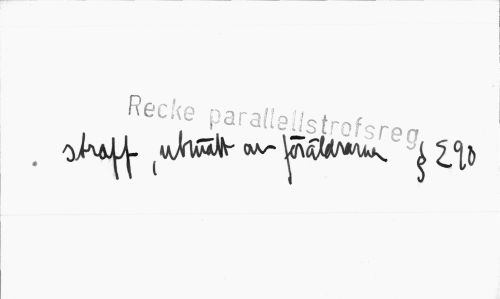 Recke parallellstrofsreg
straff, utmätt av föräldrarna § Σ 90